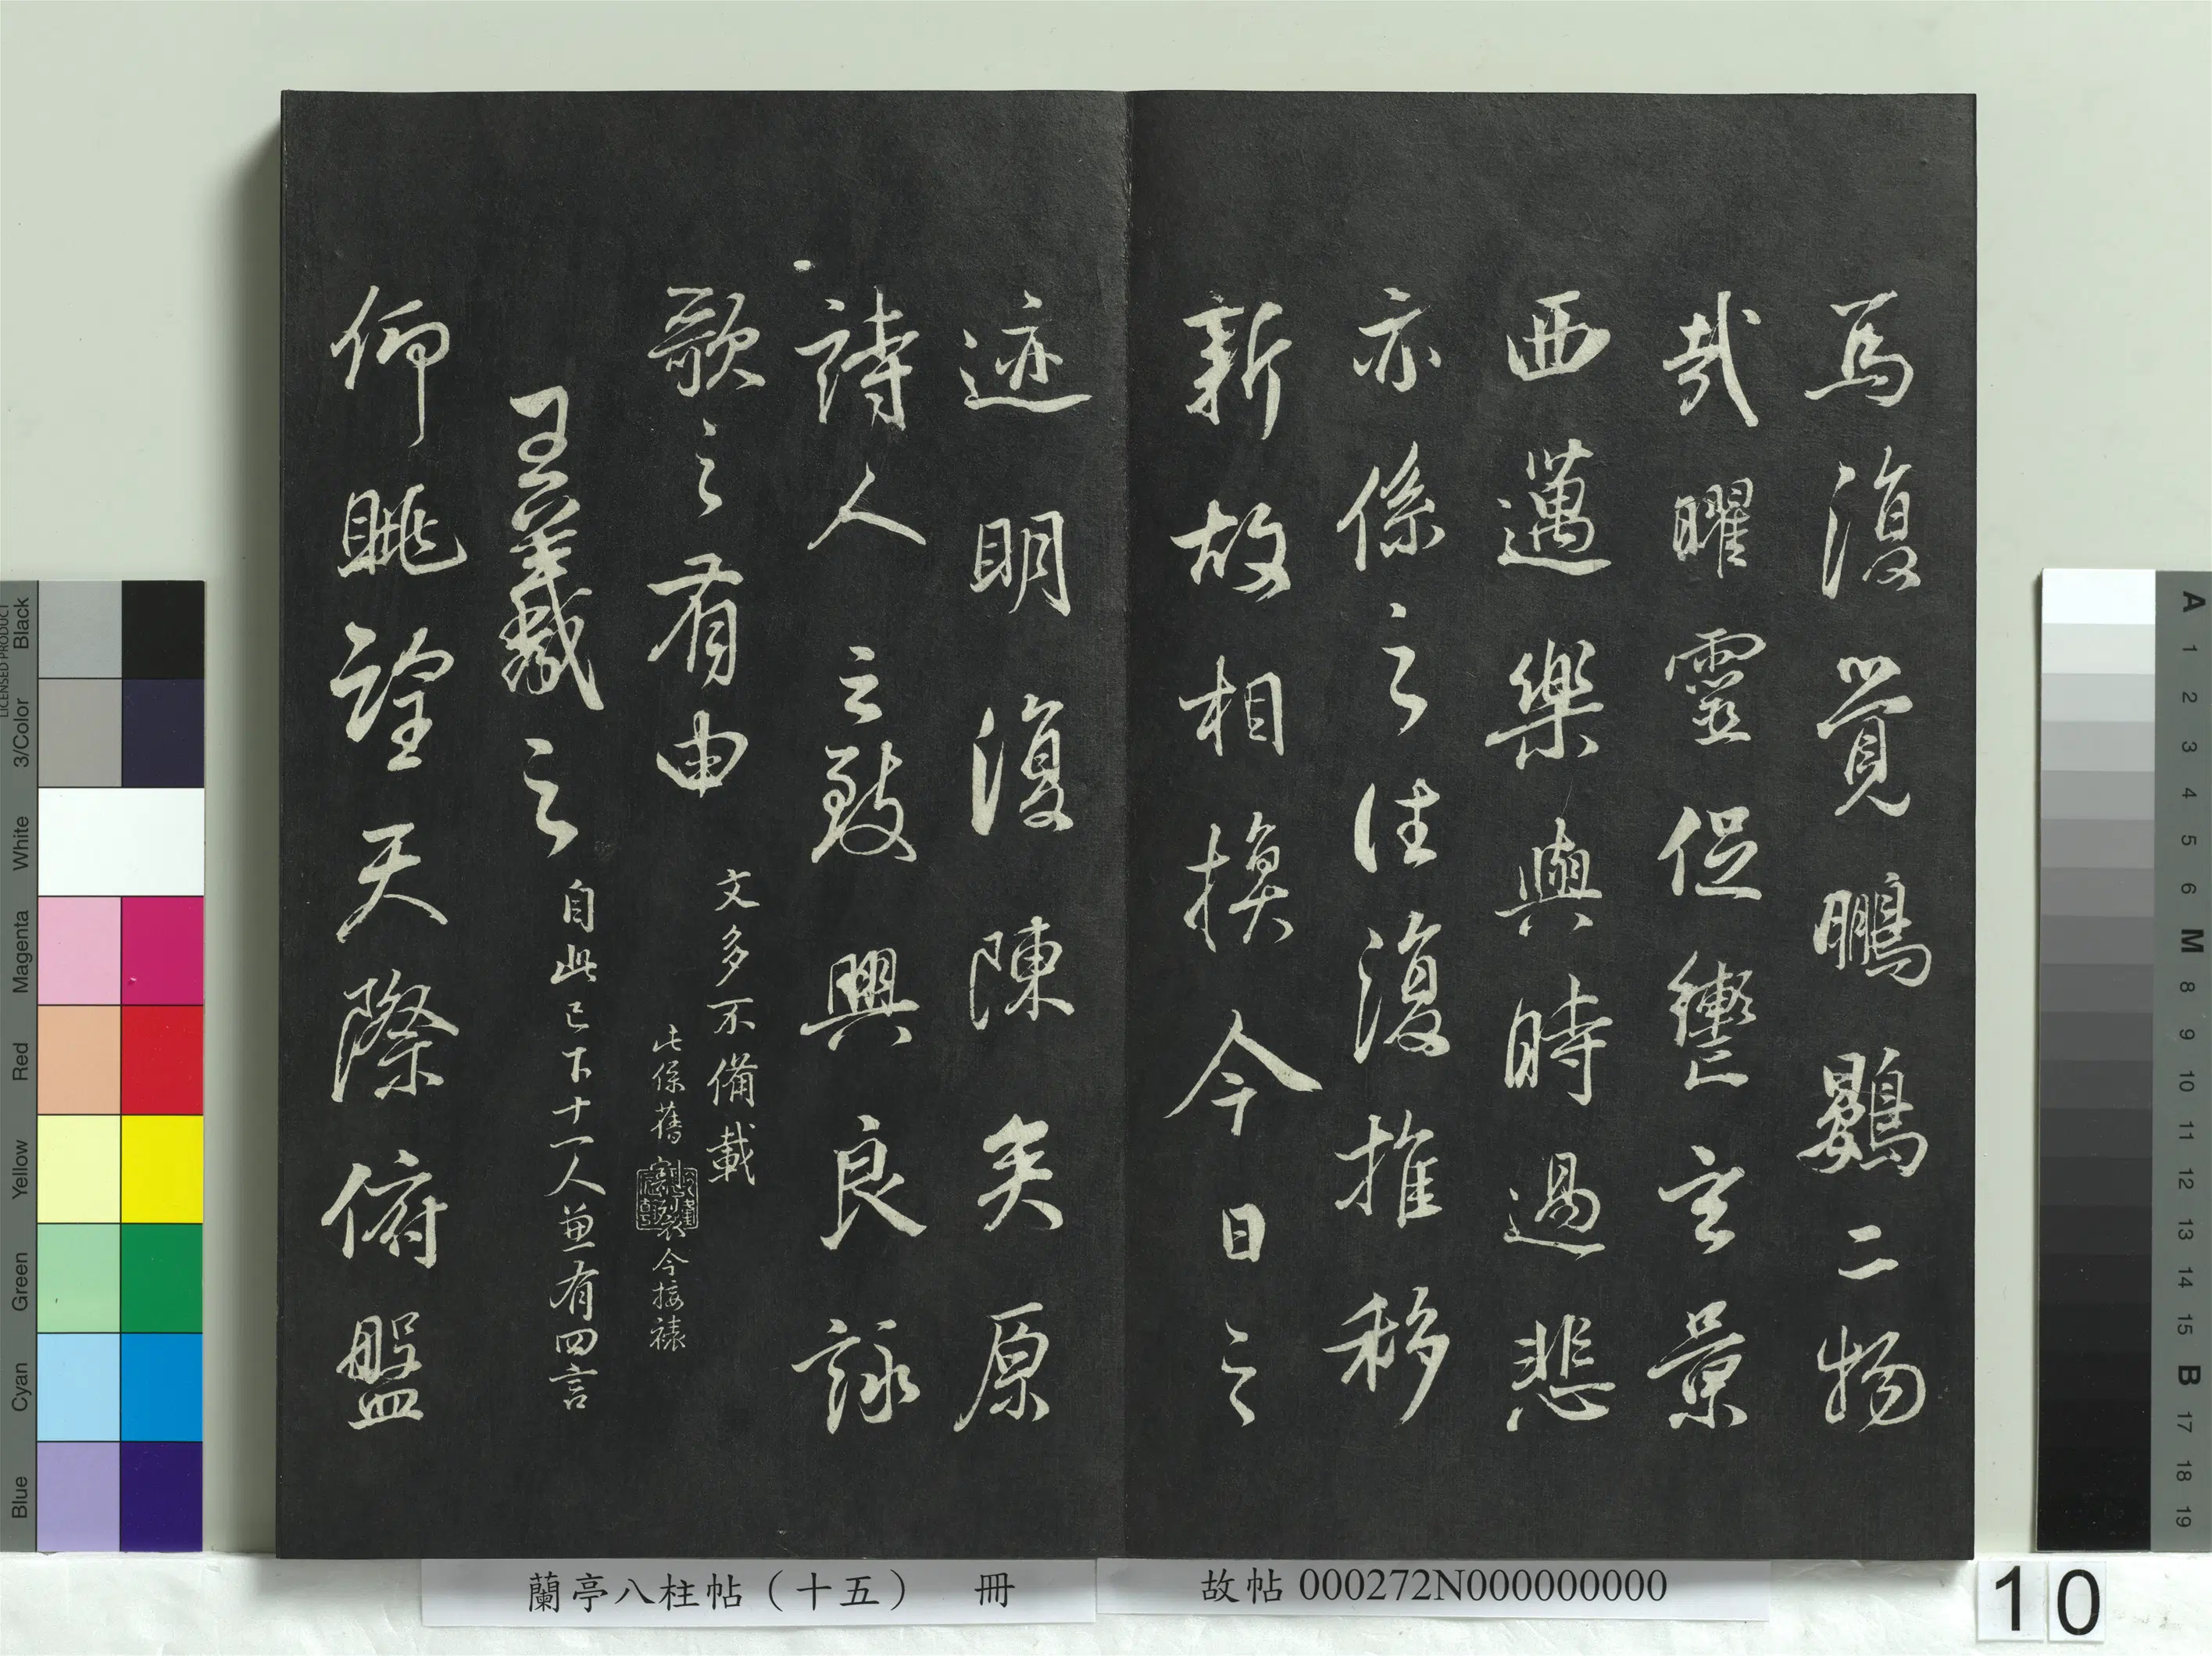 焉復覺鵬鷃二物
哉曜靈促轡玄景
西邁樂與時過悲
亦係之往復推移
新故相換今日之
迹明復陳矣原
詩人之致興良詠
歌之有由
文多不備載
此係舊割裂今接裱
王羲之
自此已下十一人兼有四言
仰眺望天際俯盤
蘭亭八柱帖（十五） 冊
故帖 000272N000000000
10
Black
3/Color
White
Magenta
Red
Yellow
Green
Cyan
Blue
LICENSED PRODUCT
A 1 2 3 4 5 6 M 8 9 10 11 12 13 14 15 B 17 18 19